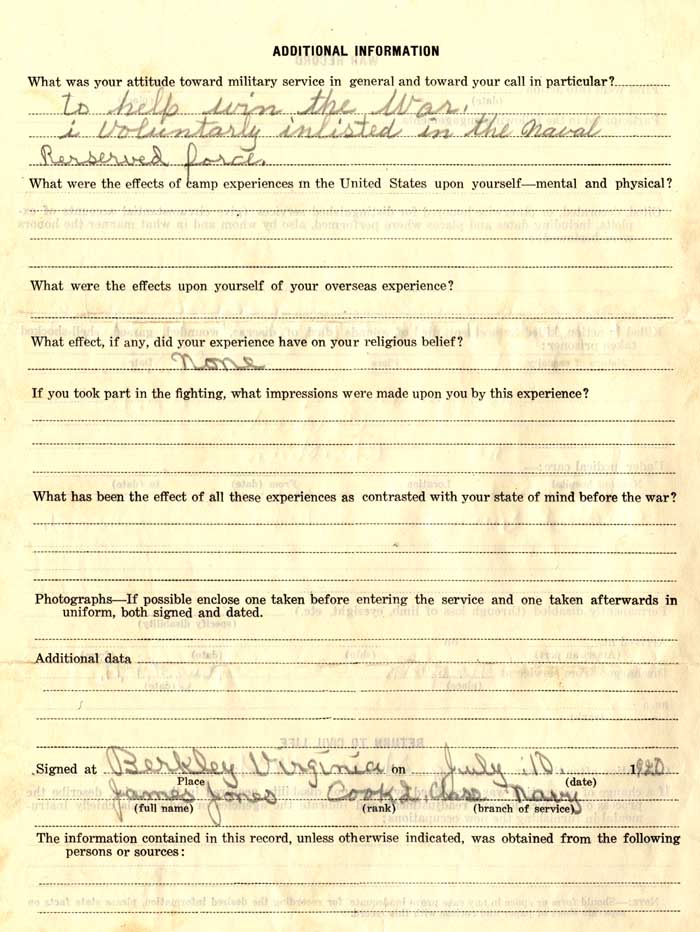 ADDITIONAL INFORMATION
What was your attitude toward military service in general and toward your call in particular?
to help win the War.
i voluntarly inlisted in the naval
Rerserved force.
What were the effects of camp experiences in the United States upon yourself—mental and physical?
What were the effects upon yourself of your overseas experience?
What effect, if any, did your experience have on your religious belief?
None
If you took part in the fighting, what impressions were made upon you by this experience?
What has been the effect of all these experiences as contrasted with your state of mind before the war?
Photographs—If possible enclose one taken before entering the service and one taken afterwards in
uniform, both signed and dated.
Additional data
Signed at Berkley Virginia on July 10. 1920
Place (date)
James Jones Cook Class Navy
(full name) (rank) (branch of service)
The information contained in this record, unless otherwise indicated, was obtained from the following
persons or sources: